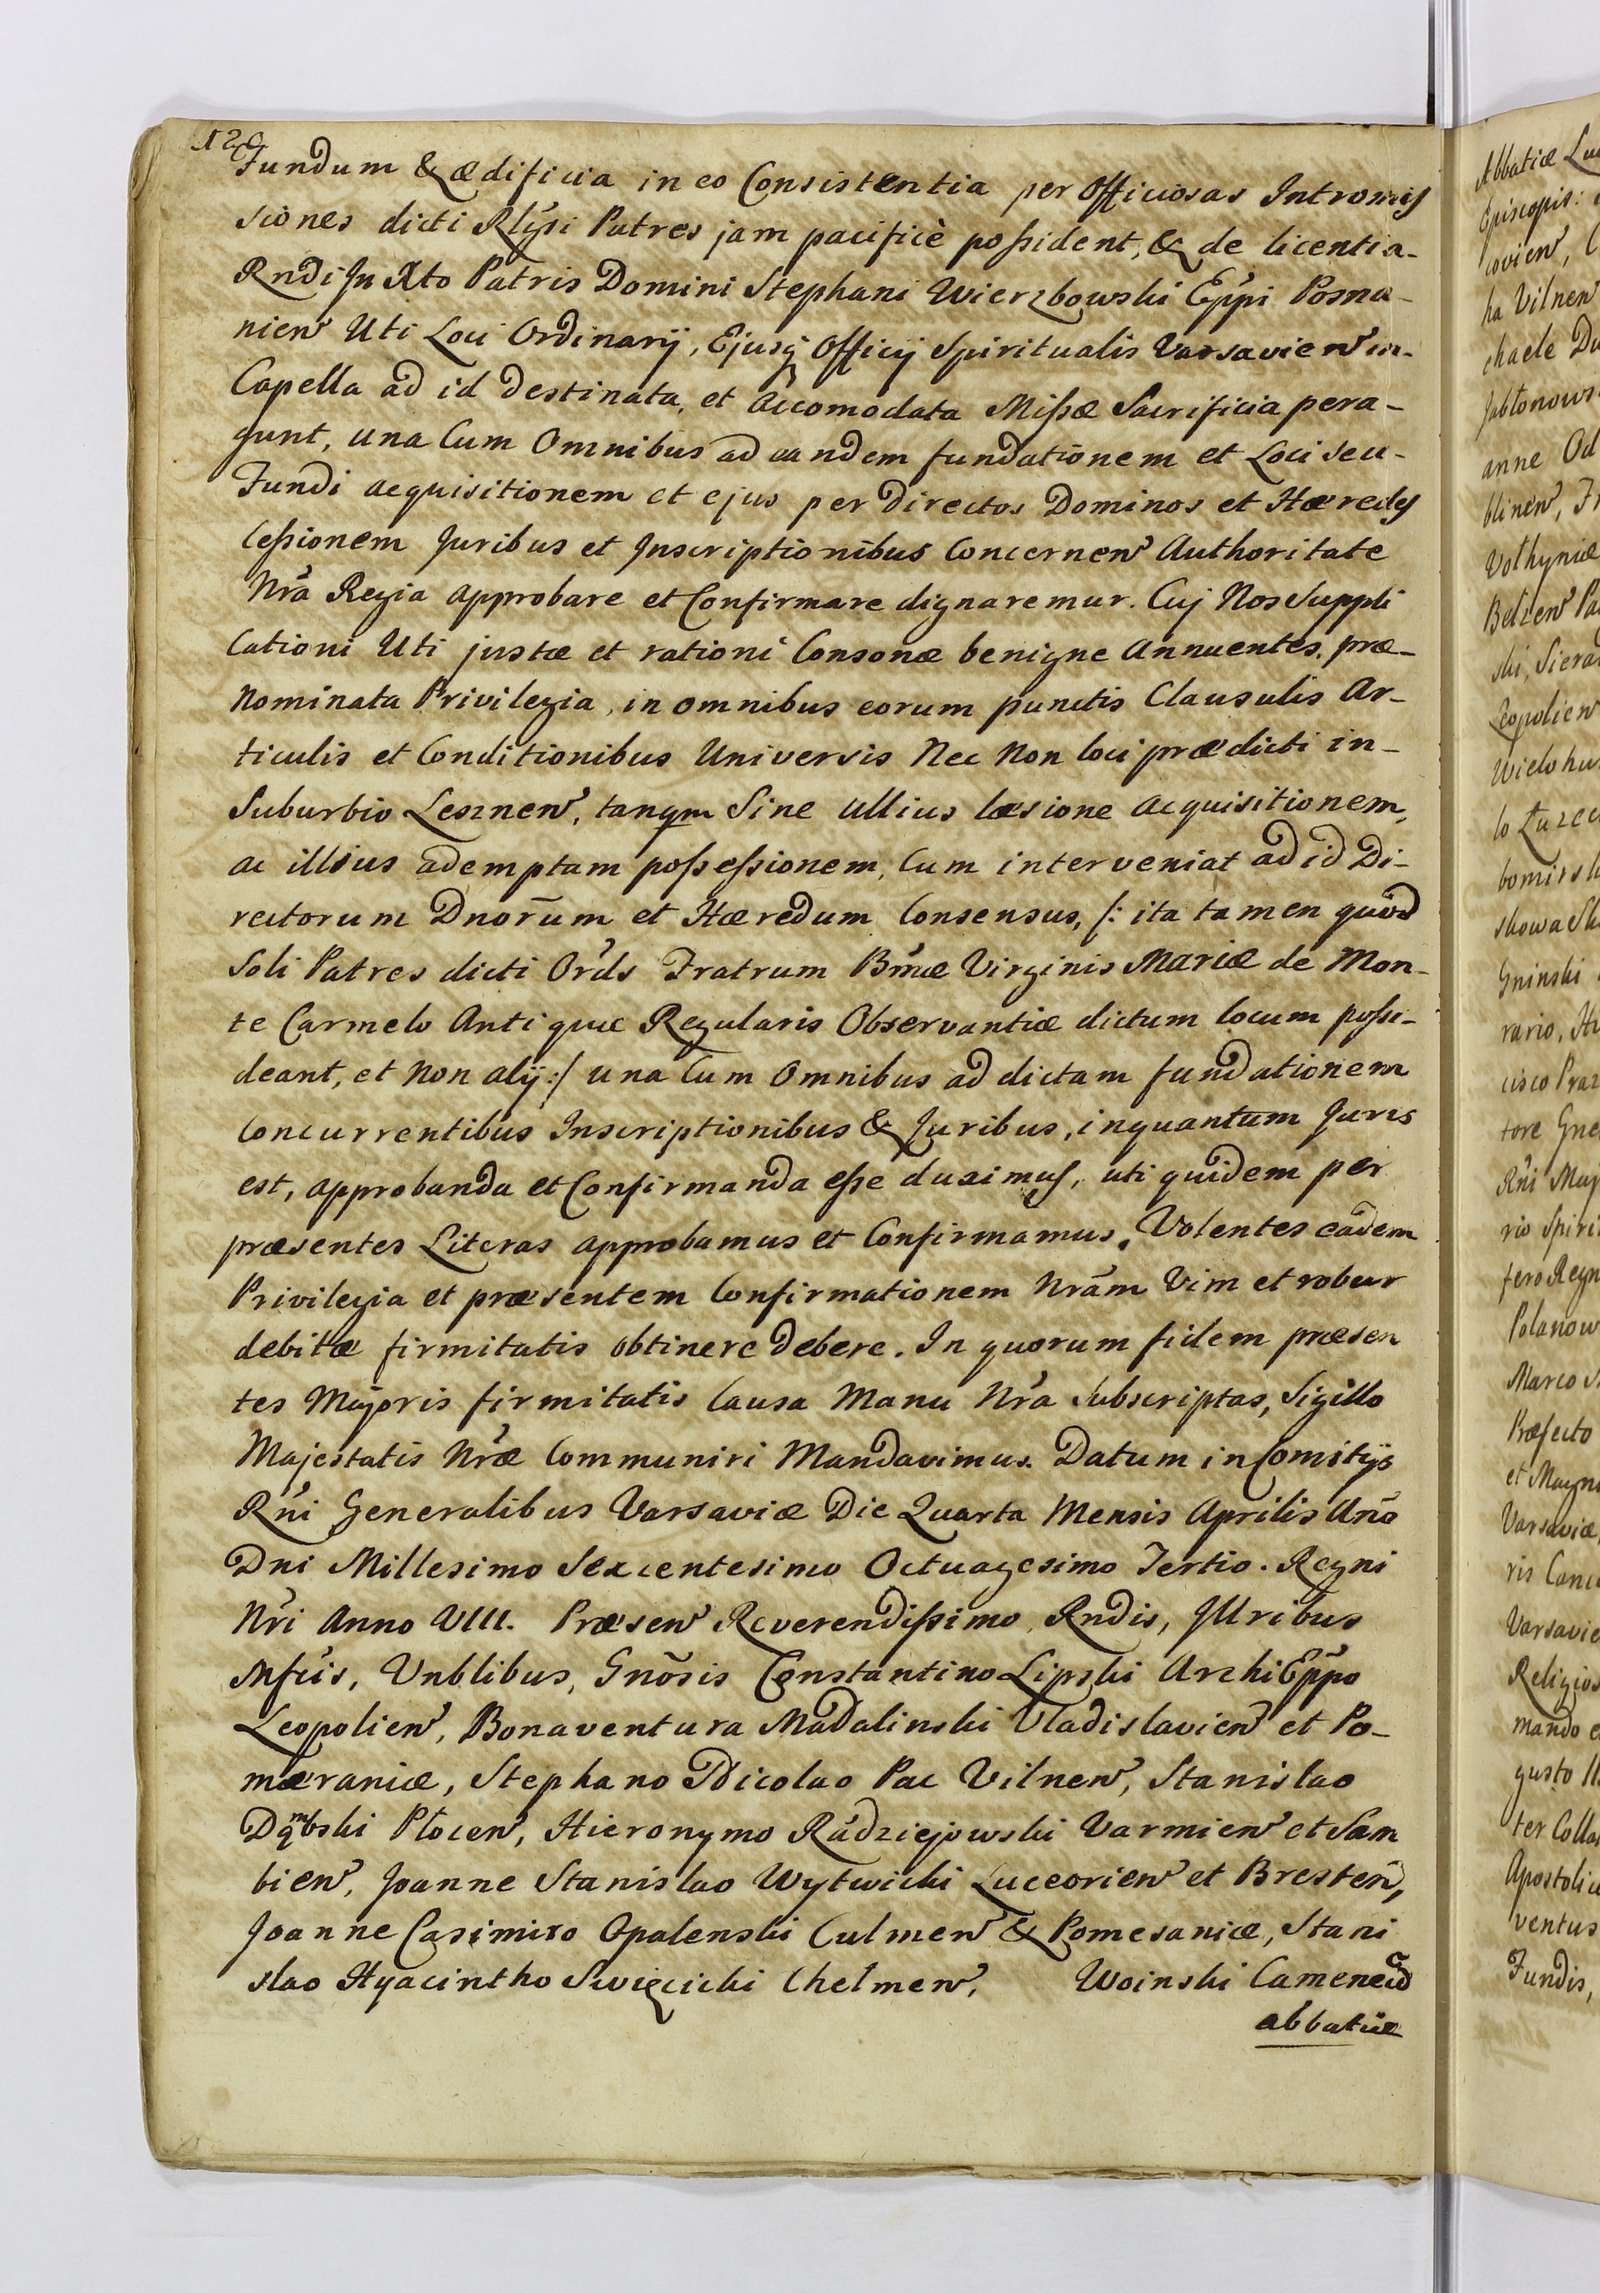 120
Fundum & ædificia in eo Consistentia per Officiosas Intromis
siones dicti Rlgsi Patres jam pacificè possident, & de licentia-
Rndi In Xto Patris Domini Stephani Wierzbowski Eppi Posna-
nien Uti Loci Ordinarij, Ejusq Officij Spiritualis Varsavien in-
Capella ad id destinata, et accomodata Missæ Sacrificia pera-
gunt, una Cum Omnibus ad eandem fundationem et Loci seu-
Fundi acquisitionem et ejus per Directos Dominos et Hæredes
Cessionem Juribus et Inscriptionibus Concernen Authoritate
Nrã Regia approbare et Confirmare dignaremur. Cuj Nos Suppli
Cationi Uti justæ et rationi Consonæ benigne Annuentes, præ-
Nominata Privilegia, in omnibus eorum punctis Clausulis Ar-
ticulis et Conditionibus Universis Nec Non loci prædicti in-
Suburbio Lesznen, tanqm Sine ullius læsione acquisitionem,
ac illius ademptam possessionem, Cum interveniat ad id Di-
rectorum Dnorum et Hæredum Consensus, /: ita tamen quod
Soli Patres dicti Ords Fratrum Bmæ Virginis Mariæ de Mon-
te Carmelo Antiquæ Regularis Observantiæ dictum locum possi-
deant, et Non alij :/ una Cum Omnibus ad dictam fundationem
Concurrentibus Inscriptionibus & Juribus, inquantum Juris
est, approbanda et Confirmanda esse duximus, uti quidem per
præsentes Literas approbamus et Confirmamus. Volentes eadem
Privilegia et præsentem Confirmationem Nrãm Vim et robur
debitæ firmitatis obtinere Debere. In quorum fidem præsen
tes Majoris firmitatis Causa Manu Nrã Subscriptas, Sigillo
Majestatis Nræ Communiri Mandavimus. Datum in Comitijs
Rni Generalibus Varsaviæ Die Quarta Mensis Aprilis Año
Dni Millesimo Sexcentesimo Octuagesimo Tertio. Regni
Nri Anno VIII. Præsen Reverendissimo, Rndis, Illribus
Mfcis, Vnblibus, Gnõsis Constantino Lipski ArchiEppo
Leopolien, Bonaventura Madalinski Vladislavien et Po-
mæraniæ, Stephano Nicolao Pac Vilnen, Stanislao
Dąmbski Płocen, Hieronymo Radziejowski Varmien et Sam
bien, Joanne Stanislao Wytwicki Luceorien et Bresten,
Joanne Casimiro Opalenski Culmen & Pomesaniæ, Stani
slao Hyacintho Swięcicki Chełmen, Woinski Camenecẽ
abbatiæ
Abbatiæ
Episcopis:
covien,
ha Vilnen
chaele
Jabłonows
anne
blinen,
Vołhyniæ
Bełzen
ski,
Leopolien
rario,
tore
Rni
rio
fero Regn
Polanow
Marco
Præfecto
et
Varsaviæ,
ris
Varsavie
Religios
mando
gusto
ter
Apostoli
ventus
Fundis,